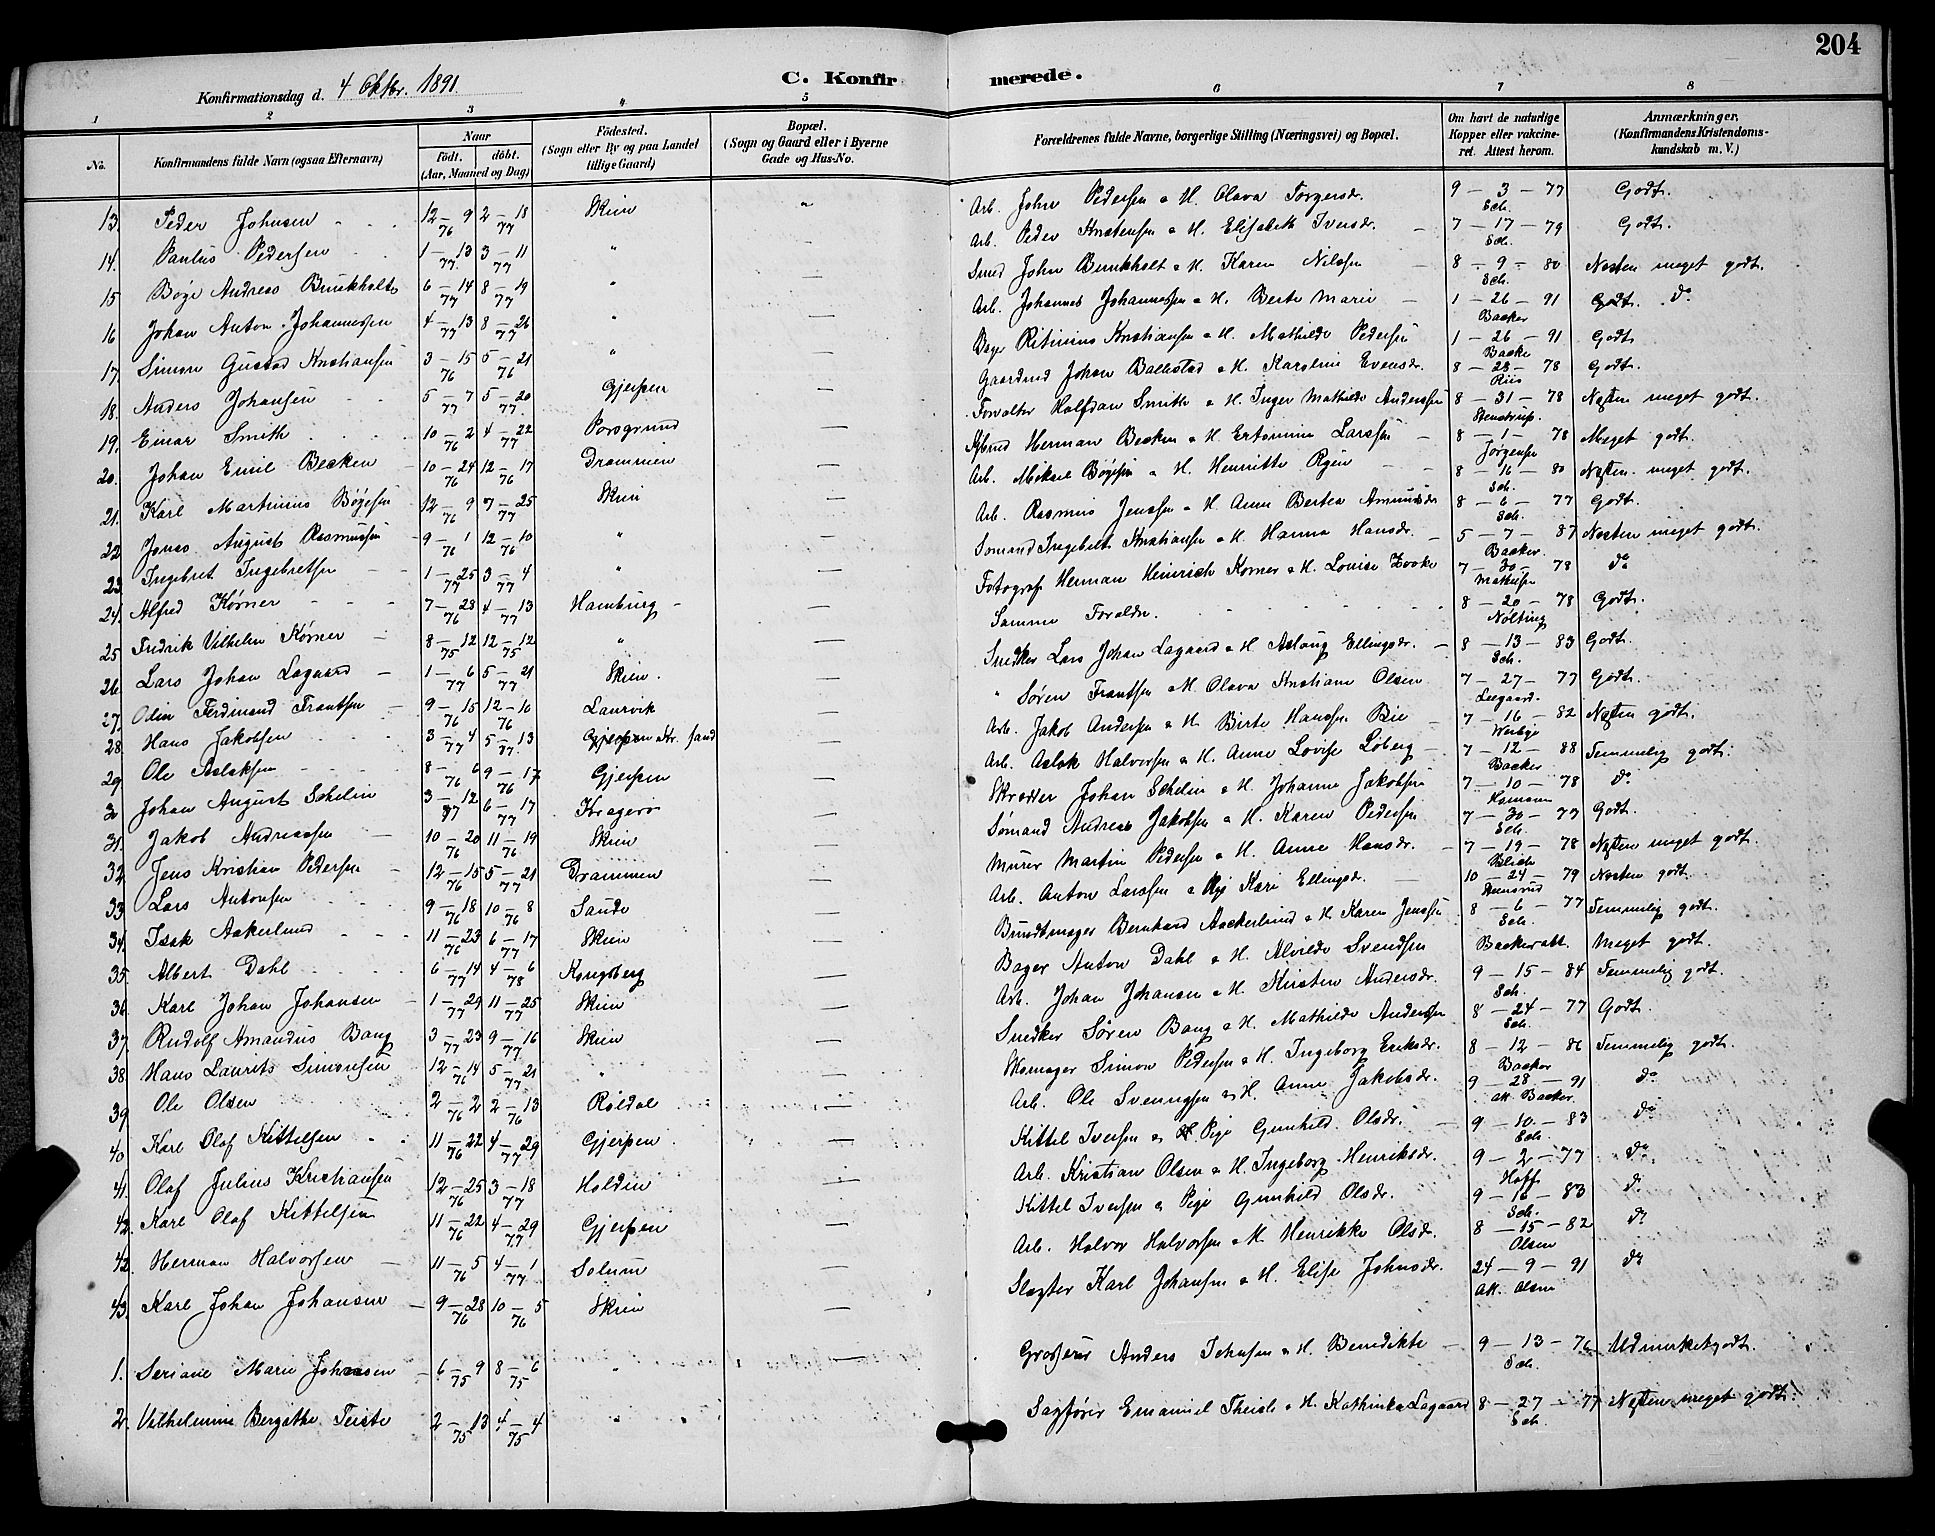 204
Konfirmationsdag d. 4 Oktbr. 1891.
C. Konfirmerede.
1 2 3 4 5 6 7 8
No. Konfirmandens fulde Navn (ogsaa Efternavn) Naar født. døbt. (Aar, Maaned og Dag) Fødested. (Sogn eller By og paa Landet tillige Gaard) Bopæl. (Sogn og Gaard eller i Byerne Gade og Hus-No. Forældrenes fulde Navne, borgerlige Stilling (Næringsvei) og Bopæl. Om havt de naturlige Kopper eller vakcineret. Attest herom. Anmærkninger, (Konfirmandens Kristendomskundskab m. V.)
13. Peder Johnsen 12–9 76 2–18 77 Skien " Arb. John Pedersen & H. Olava Torgersdr. 9–3–77 Sch. Godt.
14. Paulus Pedersen 1–13 77 3–11 77 " Arb. Peder Kristensen & H. Elisabeth Iversdr. 7–17–79 Sch. Godt.
15 Böge Andreas 6–14 77 8–19 77 " Smed John & H. Karen Nilsen 8–9–80 Sch. Næsten meget godt.
16 Johan Anton Johannessen 4–13 77 8–26 77 " Arb. Johannes Johannessen & H. Berte Marie 1–26–91 Backer Godt. do
17. Simon Gustav Kristiansen 3–15 76 5–21 76 " Kristiansen & H. Mathilde Pedersen 1–26–91 Backer Godt
18. Anders Johansen 5–7 77 5–20 77 Gjerpen Gaardmd Johan Ballestad & H. Karoline Evensdr. 8–28–78 Riis Godt.
19. Einar Smith 10–2 76 4–22 77 Porsgrund Forvalter Halfdan Smith & H. Inger Mathilde Anderssen 8–31–78 Stenstrup. Næsten meget godt.
20. Johan Emil Becken 10–24 76 12–17 76 Drammen Herman Becken & H. Larssen 8–1–78 Jørgensen Meget godt.
21. Karl Martinius Bøgesen 12–9 76 7–25 77 Skien Arb. Mikael Bøgesen & H. Henritte 8–16–80 Sch. Næsten meget godt.
22 Jonas August Rasmussen 9–1 76 12–10 76 " Arb. Rasmus Jenssen & H. Anne Bertea Amundsdr 8–6–77 Sch. Godt.
23. Ingebret Ingebretsen 1–25 77 3–4 77 " Sømand Ingebret Kristiansen & H. Hanna Hansdr. 5–7–87 Backer. Næsten meget godt.
24. Alfred Körner 7–28 76 4–13 77 Hamburg Fotograf Herman Heinrich Körner & H. Louise 7–30–78 do
25 Fredrik Vilhelm Körner 8–12 75 12–12 75 " Samme Forældre. 8–20–78 Nölting Godt.
26. Lars Johan Lagaard 1–6 77 5–21 77 Skien. Snedker Lars Johan Lagaard & H. Aslaug Ellingsdr. 8–13–83 Sch. Godt.
27. Odin Ferdinand Frantsen 9–15 76 12–10 76 Laurvik " Søren Frantsen & H. Olava Kristiane Olsen 7–27–77 Godt.
28. Hans Jakobsen 3–4 77 5–13 77 Gjerpen Arb. Jakob Andersen & H. Birte Hanssen Bie 7–16–82 Næsten godt.
29. Ole Aslaksen 8–6 76 9–17 76 Gjerpen Arb. Aslak Halvorsen & H. Anne Lovise Loberg 7–12–88 Backer Temmelig godt.
3 Johan August Schelin 3–12 77 6–17 77 Kragerø Skrædder Johan Schelin & H. Johanne Jakobsen 7–10–78 do
31. Jakob Andreassen 10–20 76 11–19 76 Skien Sømand Andreas Jakobsen & H. Karen Pedersen 7–30–77 Sch. Godt.
32. Jens Kristian Pedersen 12–15 76 5–21 77 Drammen Murer Martin Pedersen & H. Anne Hansdr. 7–19–78 Næsten meget godt.
33 Lars Antonsen 9–18 76 10–8 76 Sande Arb. Anton Larssen & Kari Ellingsdr. 10–24–79 Næsten godt.
34. Isak Aakerlund 11–23 76 6–17 77 Skien Bundtmager Bernhard Aackerlund & H. Karen Jenssen 8–6–77 Sch. Temmelig godt.
35. Albert Dahl 6–14 77 4–6 78 Kongsberg Bager Anton Dahl & H. Alvilde Svendsen Backer att. Meget godt.
36. Karl Johan Johansen 1–29 77 11–25 77 Skien Arb. Johan Johansen & H. Kirsten Andersdr. 9–15–84 Sch. Temmelig godt.
37. Rudolf Amandus Bang 3–23 77 9–16 77 Skien Snedker Søren Bang & H. Mathilde Anderssen 8–24–77 Sch. Godt.
38 Hans Laurits Simonsen 12–14 76 5–21 77 " Skomager Simon Pedersen & H. Ingeborg Eriksdr. 8–12–86 Backer Temmelig godt.
39. Ole Olsen 2–2 76 2–13 76 Röldal Arb. Ole Svenngsen & H. Anne Jakobsdr. 9–28–91 Att. Backer. do
40. Karl Olaf Kittelsen 11–22 76 4–29 77 Gjerpen Kittel Iversen & Pige Gunhild Olsdr. 9–10–83 Sch. do
41. Olaf Julius Kristiansen 12–25 76 3–18 77 Holden Arb. Kristian Olsen & H. Ingeborg Henriksdr. 9–2–77 Hoff do
42. Karl Olaf Kittelsen 11–22 76 4–29 77 Gjerpen Kittel Iversen & Pige Gunhild Olsdr. 9–10–83 Sch. do
42. Herman Halvorsen 11–5 76 4–1 77 Solum Arb. Halvor Halvorsen & H. Henrikke Olsdr. 8–15–82 Olsen do
43. Karl Johan Johansen 9–28 76 10–5 76 Skien Slagter Karl Johansen & H. Elise Johnsdr. 24–9–91 Att. Olsen do
1. Seriane Marie Johnsen 6–9 75 8–6 75 " Grosserer Anders Johnsen & H. Benedikte 9–13–76 Sch. Udmerketgodt.
2. Vilhelmine Bergithe Teiste 2–13 75 4–4 75 " Sagfører Emanuel Theiste & H. Kathinka Lagaard 8–27–77 Sch. Næsten meget godt.